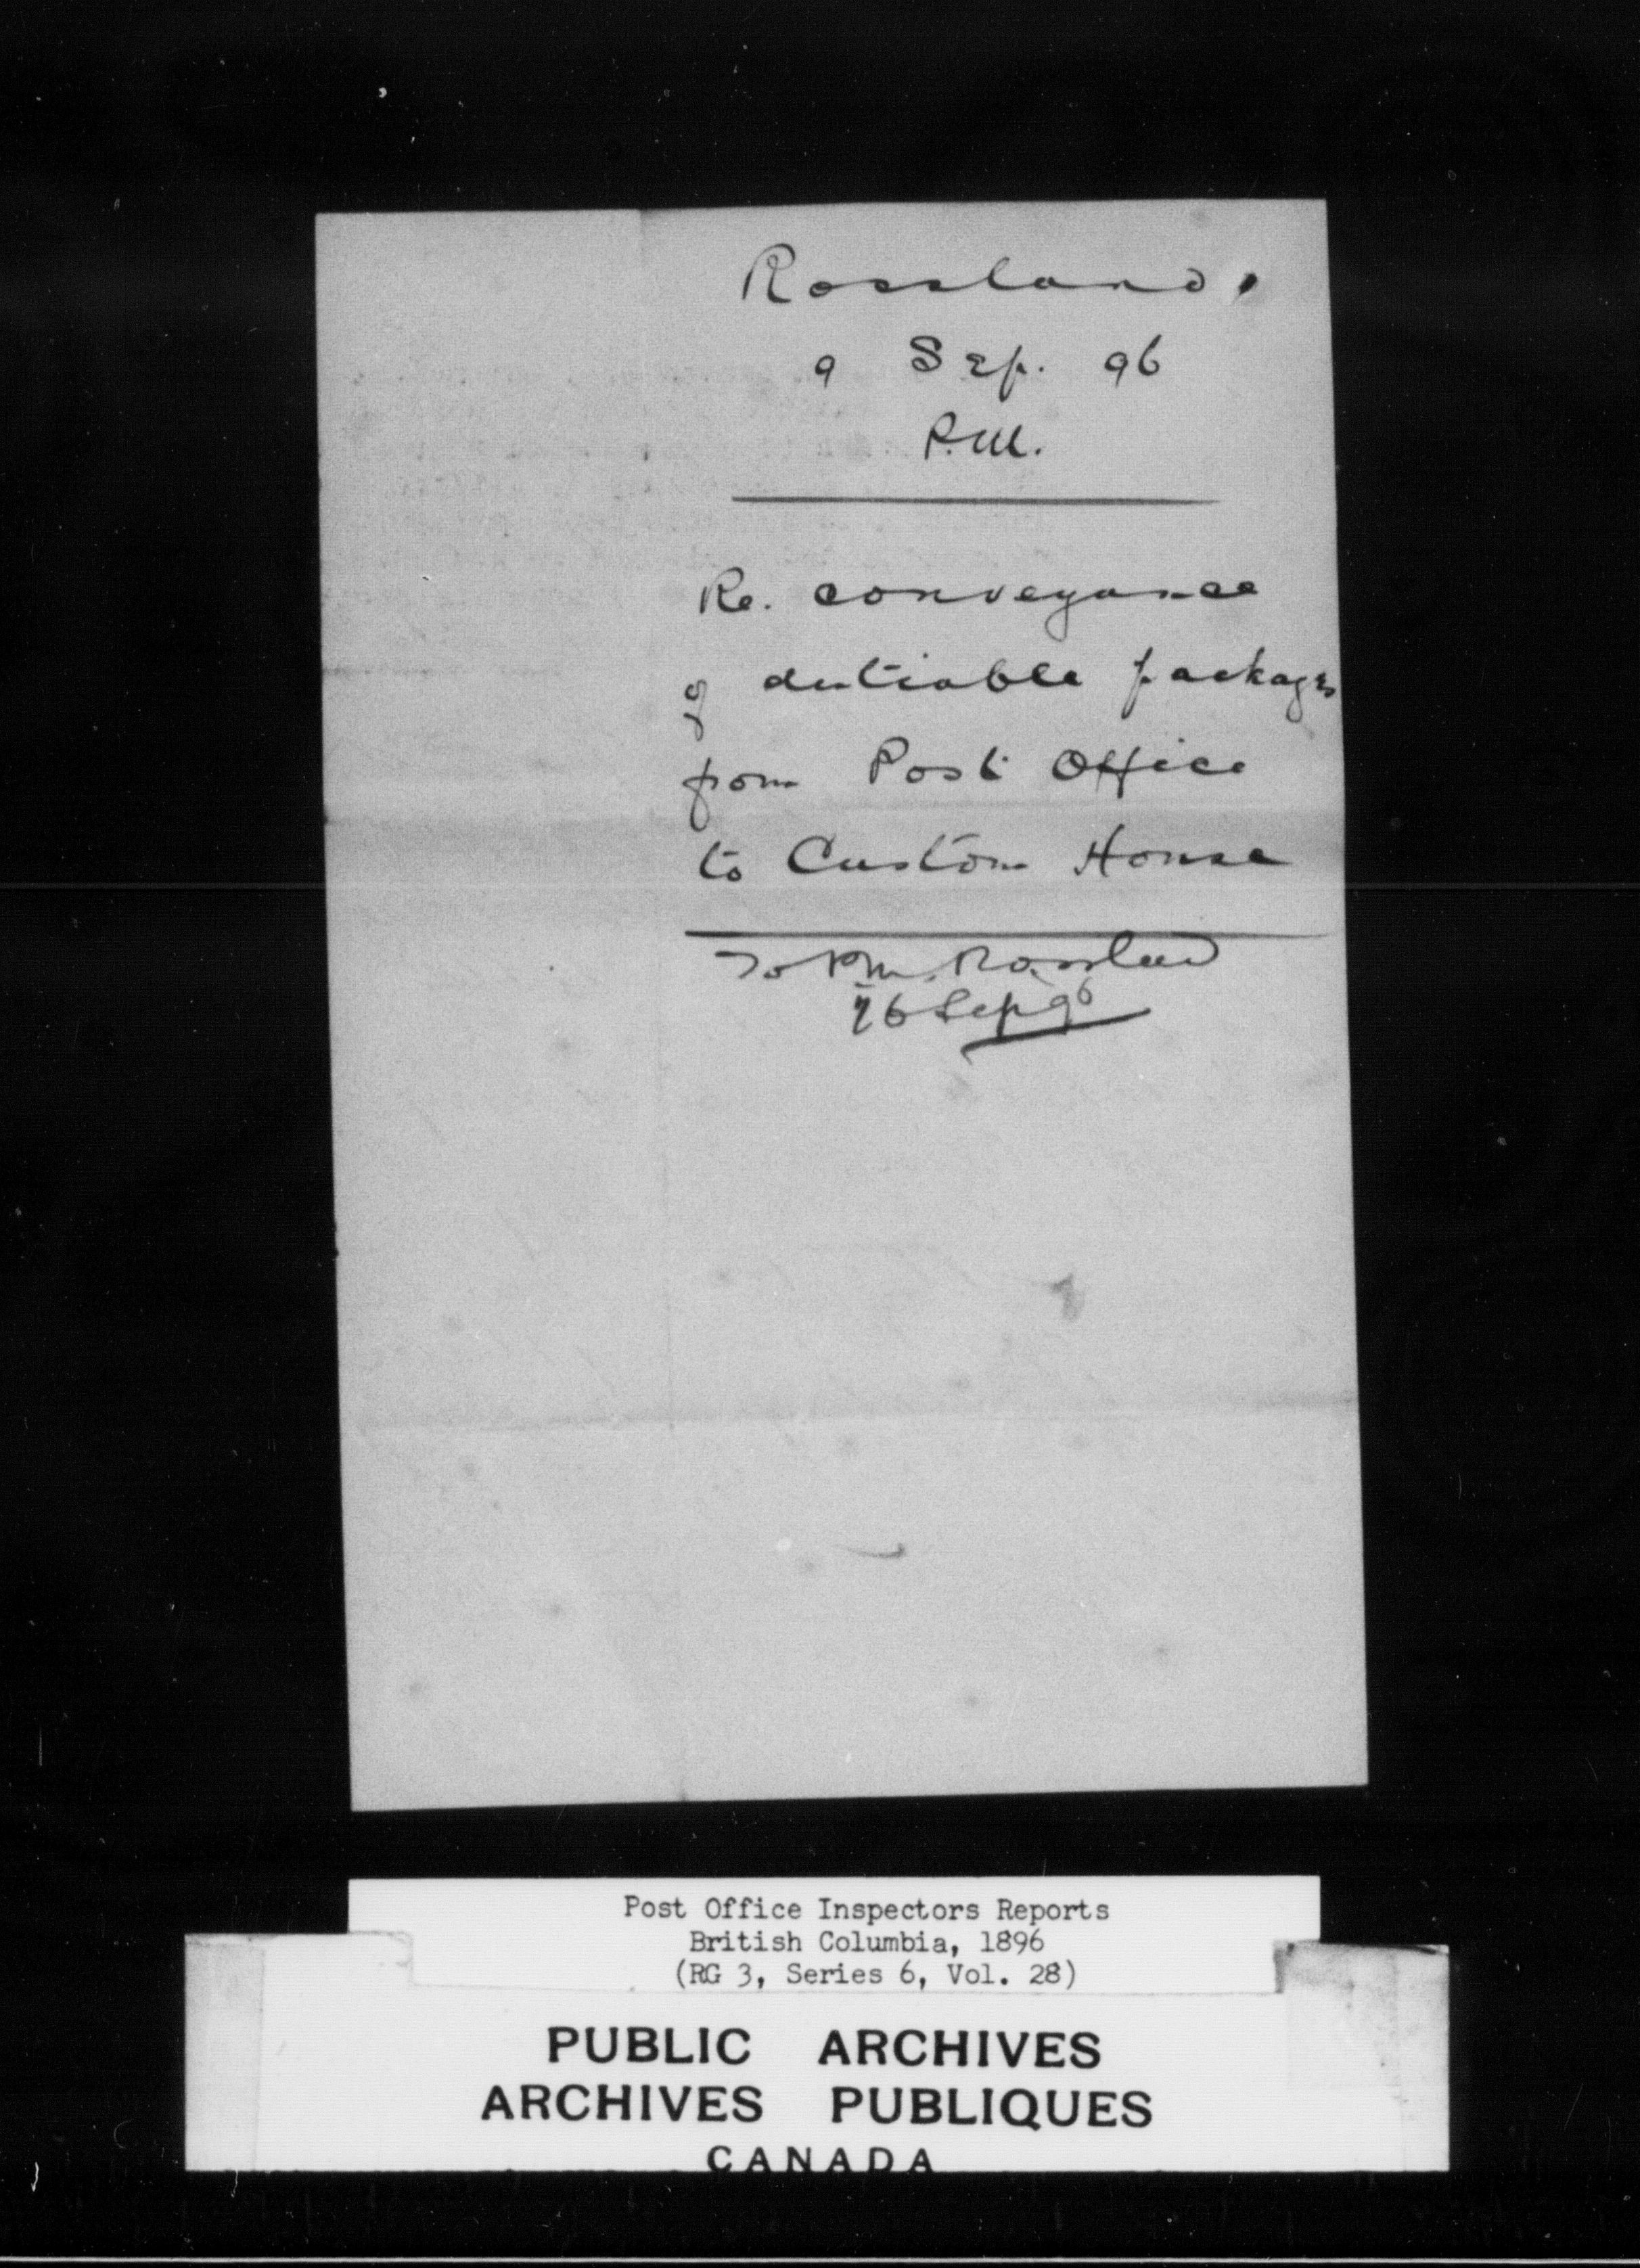 Rossland.
9 Sep. 96
P.M.
Re. conveyance
of dutiable packages
from Post Office
to Custom House
To P.M. Rossland
26 Sep 96
Post Office Inspectors Reports
British Columbia, 1896
(RG 3, Series 6, Vol. 28)
PUBLIC ARCHIVES
ARCHIVES PUBLIQUES
CANADA